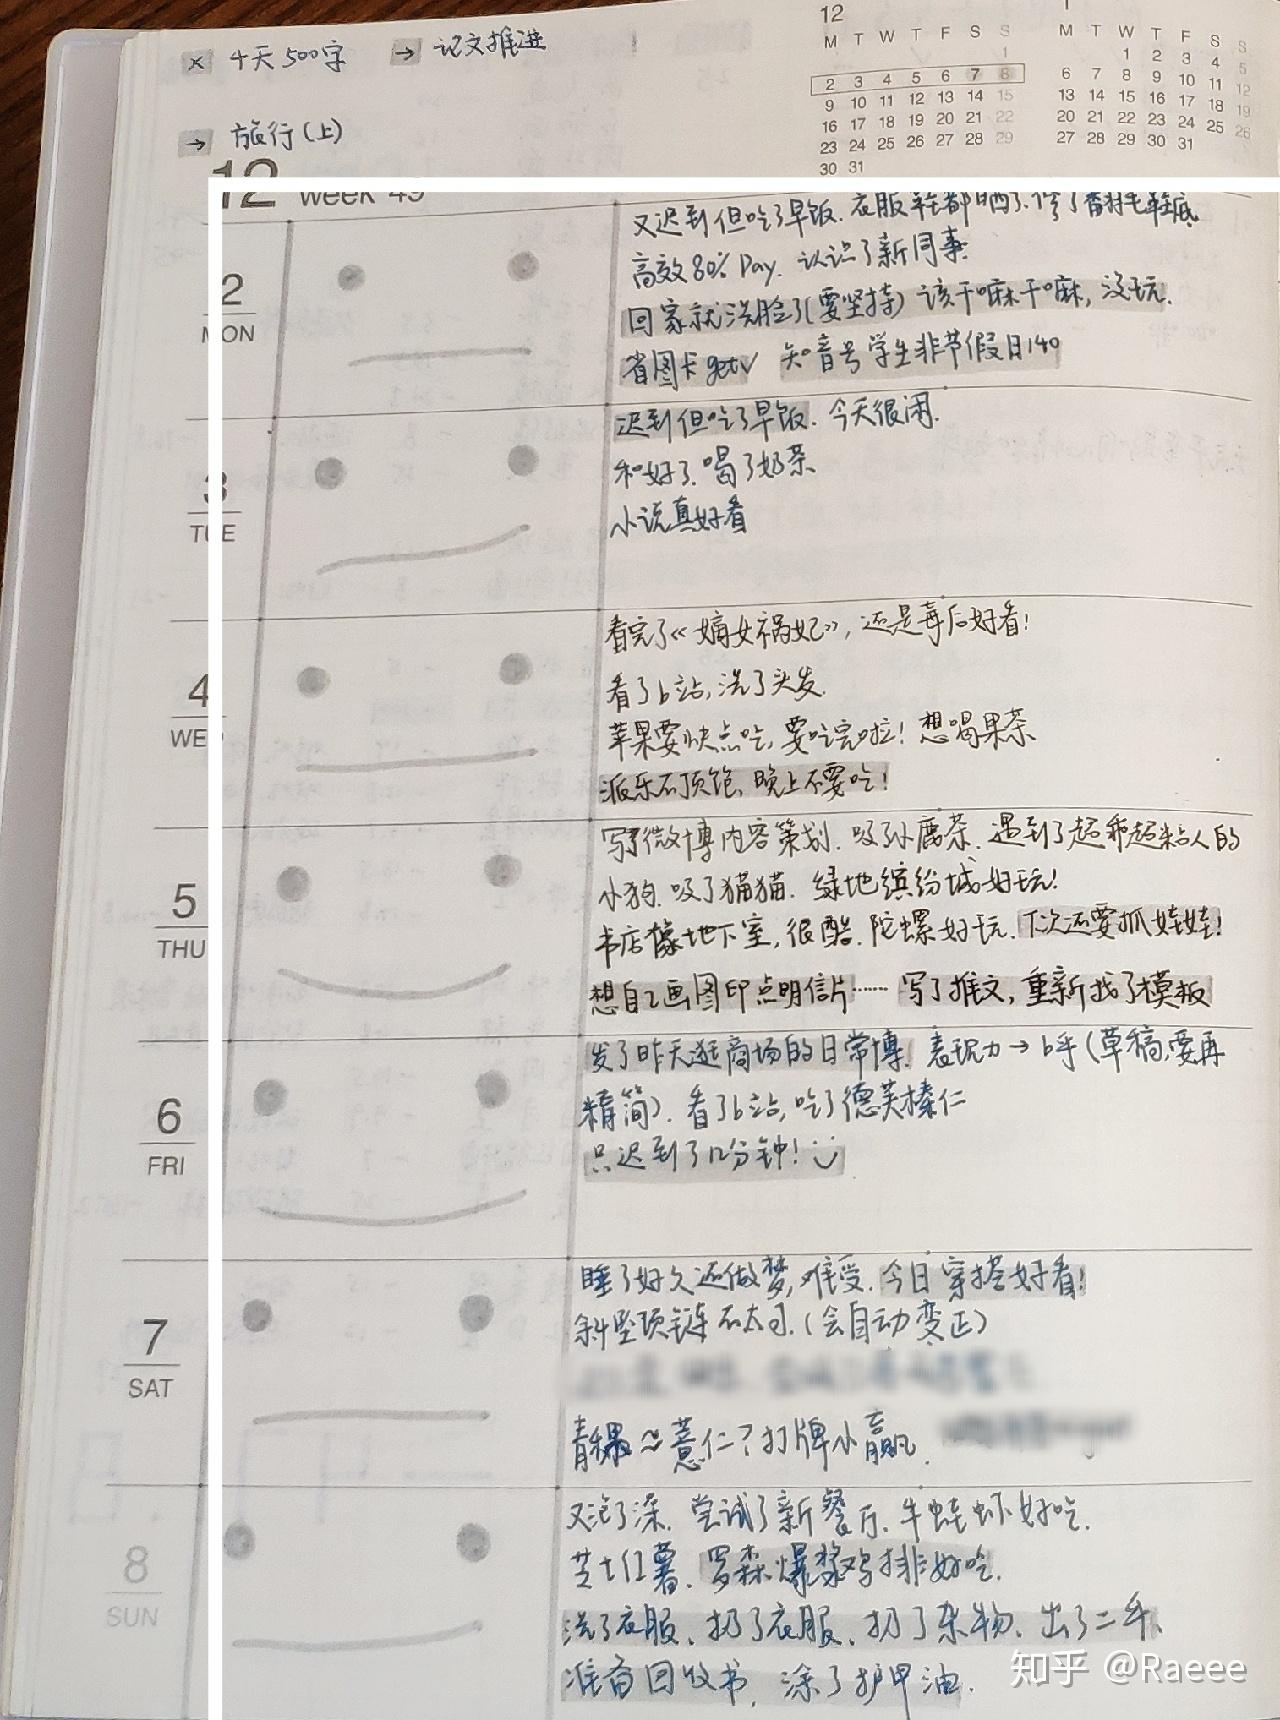 × 4天500字 → 论文推进
→ 旅行(上)
12 week 49
12
M T W T F S S
1
2 3 4 5 6 7 8
9 10 11 12 13 14 15
16 17 18 19 20 21 22
23 24 25 26 27 28 29
30 31
1
M T W T F S S
1 2 3 4 5
6 7 8 9 10 11 12
13 14 15 16 17 18 19
20 21 22 23 24 25 26
27 28 29 30 31
2
MON
又迟到但吃了早饭. 衣服鞋都晒了. 修了香持毛鞋底
高效80% Day. 认识了新同事
回家就洗脸了(要坚持) 该干嘛干嘛, 没玩.
省图卡get✓ 知音号学生非节假日140
3
TUE
迟到但吃了早饭. 今天很闲.
和好了. 喝了奶茶
小说真好看
4
WED
看完了《嫡女祸妃》, 还是毒后好看!
看了b站, 洗了头发.
苹果要快点吃, 要吃完啦! 想喝果茶
派乐不顶饱, 晚上不要吃!
5
THU
写了微博内容策划. 吸孙厝茶. 遇到了超乖超粘人的
小狗. 吸了猫猫. 绿地缤纷城好玩!
书店像地下室, 很酷. 陀螺好玩. 下次还要抓娃娃!
想自己画图印点明信片…… 写了推文, 重新找了模板
6
FRI
发了昨天逛商场的日常博. 表现力→b乎(草稿,要再
精简). 看了b站, 吃了德芙榛仁
只迟到了几分钟!
7
SAT
睡了好久还做梦, 难受. 今日穿搭好看!
斜坠项链不太可.(会自动变正)
青稞≈薏仁? 打牌小赢.
8
SUN
又泡了深. 尝试了新餐厅. 牛蛙虾好吃.
芝士红薯. 罗森爆浆鸡排好吃.
洗了衣服、扔了衣服、扔了杂物、出了二手、
准备回收书, 涂了护甲油.
知乎 @Raeee